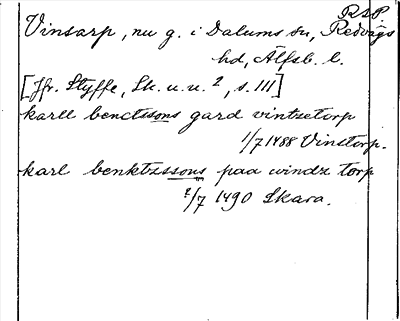 RAP.
Vinsarp, nu g. i Dalums sn, Redvägs
hd, Älfsb. l.
[Jfr. Styffe, Sk. u. u. 2, s. 111]
karll benctssons gard vintzetorp
1/7 1488 Vinstorp.
karl benktzssons paa windz torp
2/7 1490 Skara.